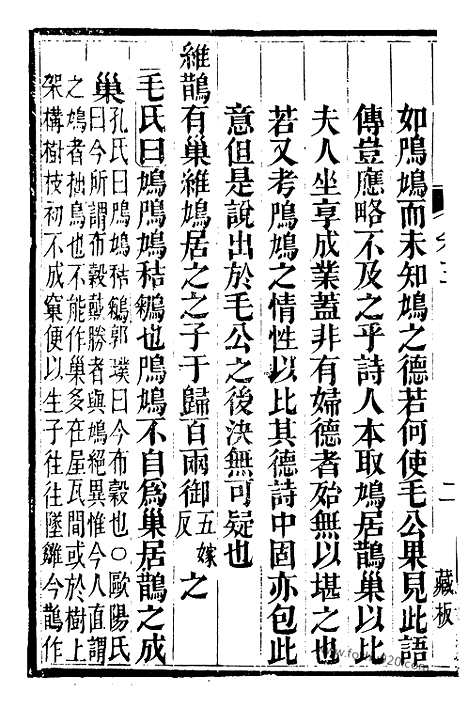 如鳲鳩而未知鳩之德若何使毛公果見此語
傳豈應略不及之乎詩人本取鳩居鵲巢以比
夫人坐享成業蓋非有婦德者殆無以堪之也
若又考鳲鳩之情性以比其德詩中固亦包此
意但是說出於毛公之後決無可疑也
維鵲有巢維鳩居之之子于歸百兩御五嫁反之
毛氏曰鳩鳲鳩秸鞠也鳲鳩不自為巢居鵲之成
巢孔氏曰鳲鳩秸鞠郭璞曰今布穀也○歐陽氏
曰今所謂布穀戴勝者與鳩絕異惟今人直謂
之鳩者拙鳥也不能作巢多在屋瓦間或於樹上
架構樹枝初不成窠便以生子往往墜雛今鵲作
二
藏板